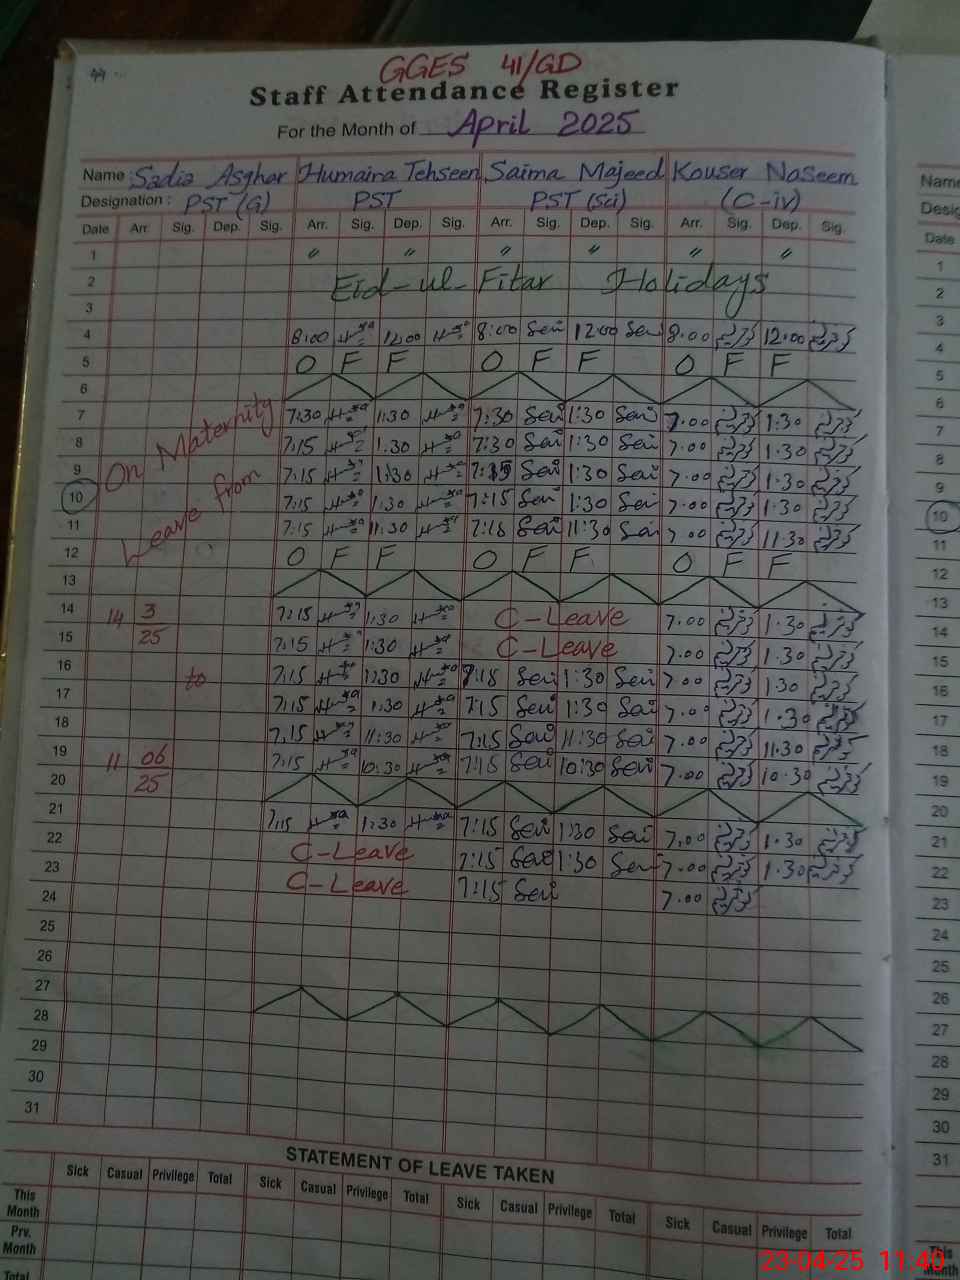 GGES 41/GD
Staff Attendance Register
For the Month of April 2025
Name : Sadia Asghar Humaira Tehseen Saima Majeed Kouser Naseem
Designation : PST (G) PST PST (Sci) (C-iv)
Date Arr. Sig. Dep. Sig. Arr. Sig. Dep. Sig. Arr. Sig. Dep. Sig. Arr. Sig. Dep. Sig.
1 " " " " " "
2 Eid-ul-Fitar Holidays
3
4 8:00 12:00 8:00 12:00 8.00 12.00
5 O F F O F F O F F
6
7 7:30 1:30 7:30 1:30 7.00 1:30
8 7:15 1.30 7:30 1:30 7.00 1.30
9 7:15 1:30 7:15 1:30 7.00 1.30
10 7:15 1:30 7:15 1:30 7.00 1.30
11 7:15 11:30 7:15 11:30 7.00 11.30
On Maternity
Leave from
12 O F F O F F O F F
13
14 14 3 7:15 1:30 C-Leave 7.00 1.30
15 25 7:15 1:30 C-Leave 7.00 1.30
16 to 7:15 1:30 7:15 1:30 7.00 1.30
17 7:15 1:30 7:15 1:30 7.00 1.30
18 7:15 11:30 7:15 11:30 7.00 11.30
19 11 06 7:15 10:30 7:15 10:30 7.00 10.30
20 25
21 7:15 1:30 7:15 1:30 7.00 1.30
22 C-Leave 7:15 1:30 7.00 1.30
23 C-Leave 7:15 7.00
24
25
26
27
28
29
30
31
STATEMENT OF LEAVE TAKEN
Sick Casual Privilege Total Sick Casual Privilege Total Sick Casual Privilege Total Sick Casual Privilege Total
This Month
Prv. Month
Total
Name
Date
1
2
3
4
5
6
7
8
9
10
11
12
13
14
15
16
17
18
19
20
21
22
23
24
25
26
27
28
29
30
31
This Month
23-04-25 11:40